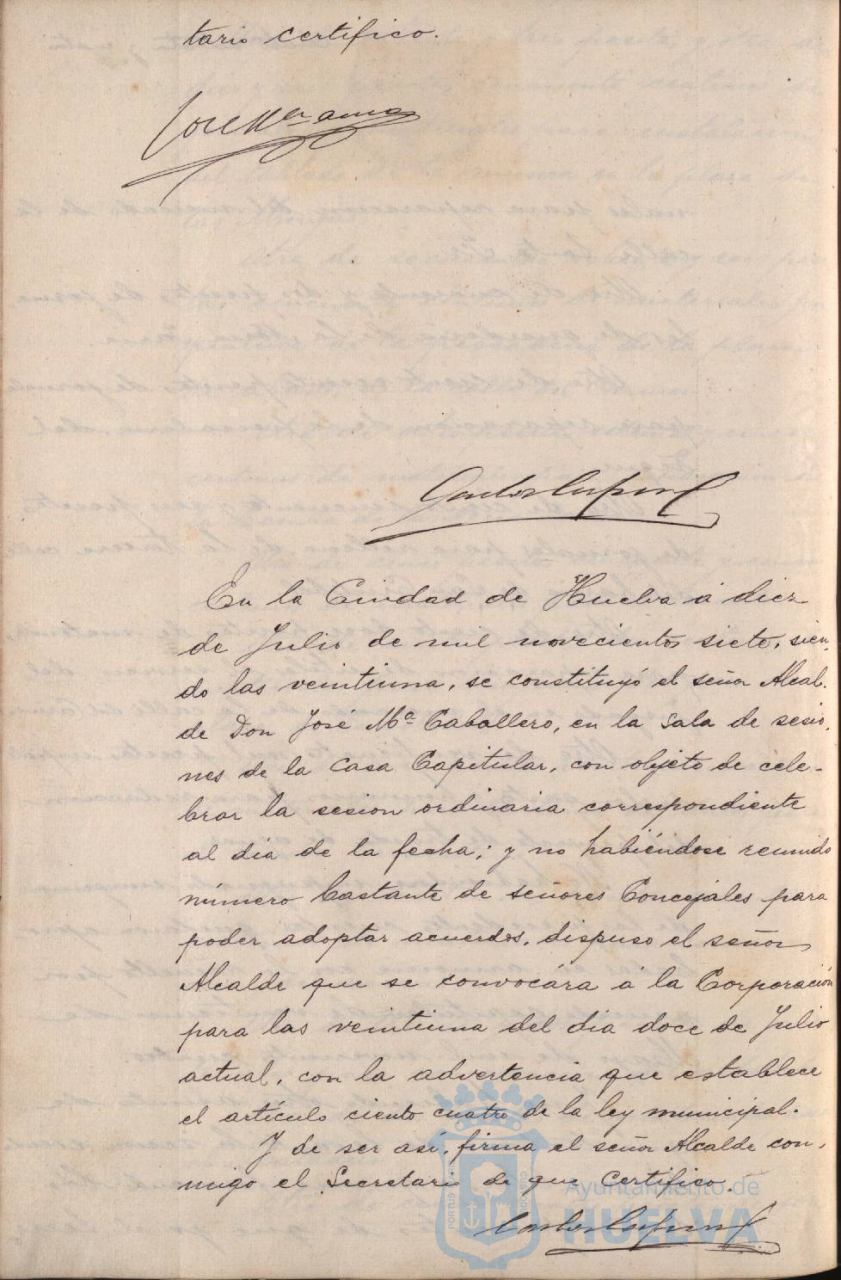 tario certifico.
En la Ciudad de Huelva á diez
de Julio de mil novecientos siete, sien-
do las veintiuna, se constituyó el señor Alcal-
de Don José Mª Caballero, en la sala de sesio-
nes de la Casa Capitular, con objeto de cele-
brar la sesion ordinaria correspondiente
al dia de la fecha; y no habiéndose reunido
número bastante de señores Concejales para
poder adoptar acuerdos, dispuso el señor
Alcalde que se convocára á la Corporación
para las veintiuna del dia doce de Julio
actual, con la advertencia que establece
el artículo ciento cuatro de la ley municipal.
Y de ser así, firma el señor Alcalde con-
migo el Secretario de que certifico.
PORTUS
Ayuntamiento de
HUELVA